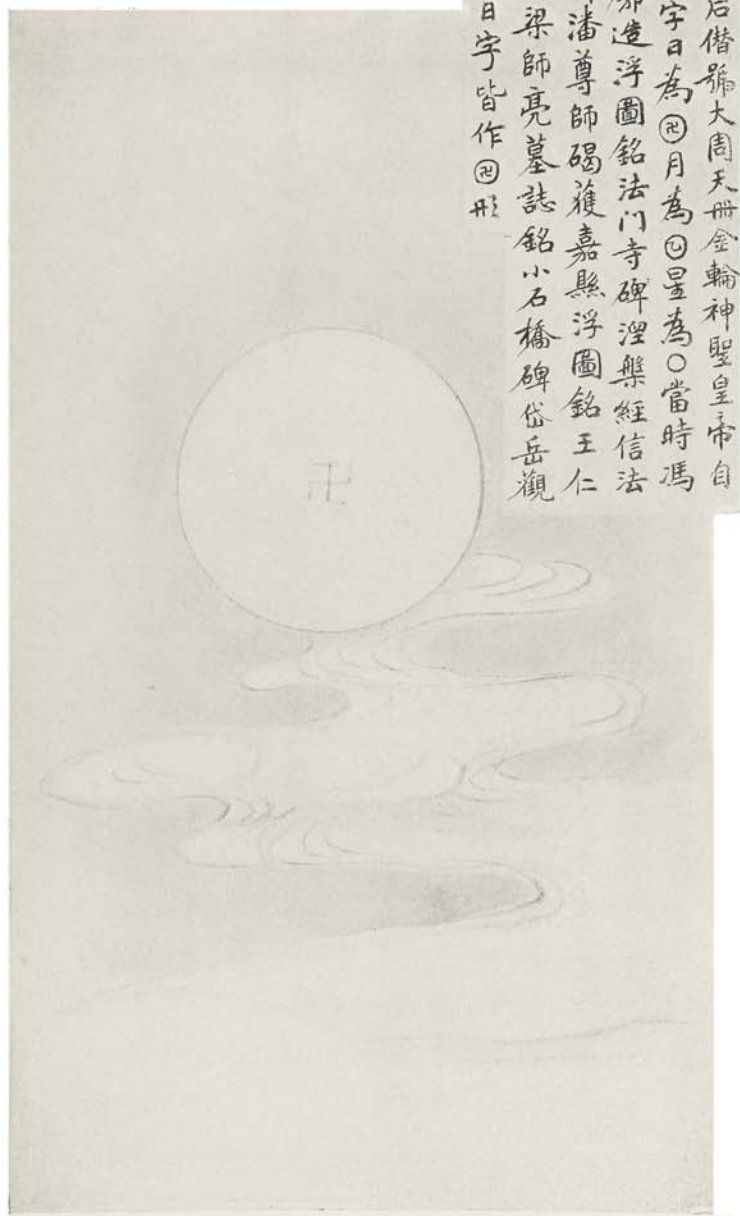 后僭號大周天冊金輪神聖皇帝自
字日為卍⃝月為乙⃝星為〇當時馮
廓造浮圖銘法门寺碑涅槃經信法
潘尊師碣獲嘉縣浮圖銘王仁
梁師亮墓誌銘小石橋碑岱岳觀
日字皆作卍⃝形
卍